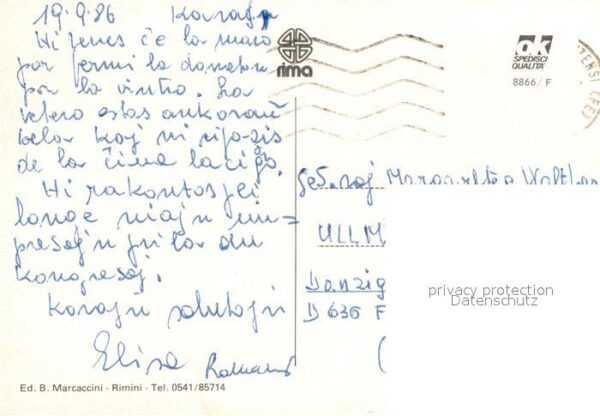 19.9.86 Karaj
Ni venas ĉe la maro
por fermi la
por la vintro. La
vetero estas ankoraŭ
bela kaj ni ripozis
de la ĉima laciĝo.
Ni rakontos ĝei
longe niajn im-
presojn pri la du
kongresoj.
Korajn salutojn
Elisa
rima
O.K
SPEDISCI
QUALITA'
8866/F
Ges-roj Margarete Walt
ULLM
Danzig
D 636 F
privacy protection
Datenschutz
Ed. B. Marcaccini - Rimini - Tel. 0541/85714